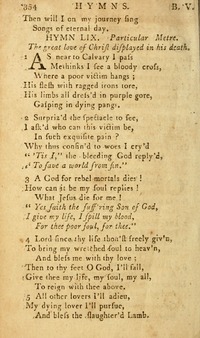 354 HYMNS. B. V.
Then will I on my journey sing
Songs of eternal day.
HYMN LIX. Particular Metre.
The great love of Christ displayed in his death.
1 AS near to Calvary I pass
Methinks I see a bloody cross,
Where a poor victim hangs;
His flesh with ragged irons tore,
His limbs all dress'd in purple gore,
Gasping in dying pangs.
2 Surpriz'd the spectacle to see,
I ask'd who can this victim be,
In such exquisite pain?
Why thus consin'd to woes I cry'd
"'Tis I," the bleeding God reply'd,
"To save a world from sin."
3 A God for rebel mortals dies!
How can it be my soul replies!
What Jesus die for me!
"Yes, saith the suff'ring Son of God,
I give my life, I spill my blood,
For thee poor soul, for thee."
4 Lord since thy life thou'st freely giv'n,
To bring my wretched soul to heav'n,
And bless me with thy love;
Then to thy feet O God, I'll fall,
Give thee my life, my soul, my all,
To reign with thee above.
5 All other lovers I'll adieu,
My dying lover I'll pursue,
And bless the slaughter'd Lamb.